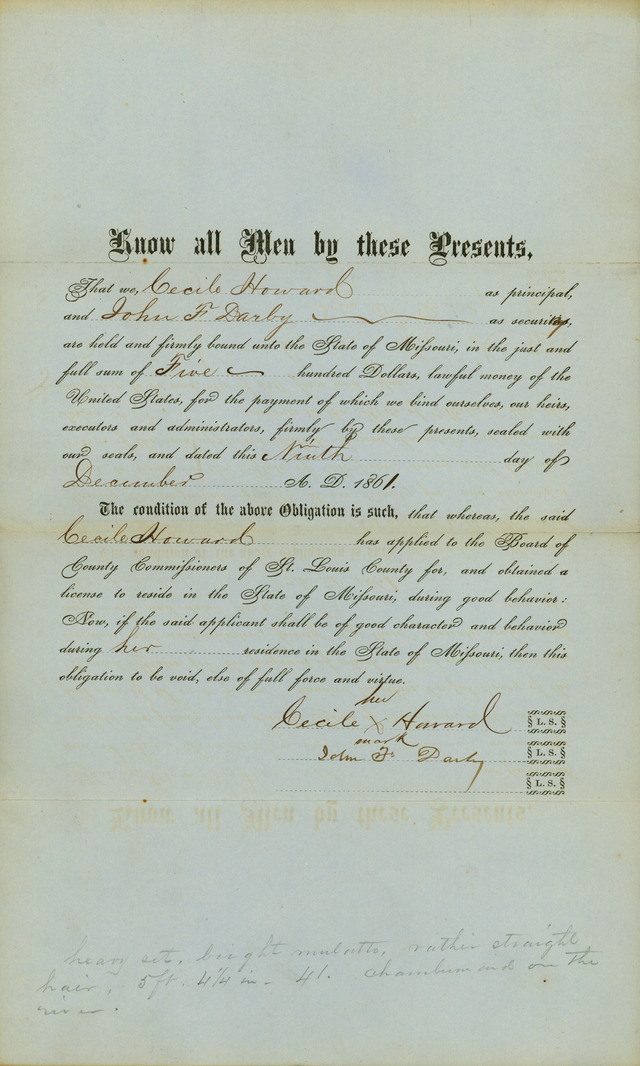 Know all Men by these Presents,
That we, Cecile Howard as principal,
and John F Darby as security,
are held and firmly bound unto the State of Missouri, in the just and
full sum of Five hundred Dollars, lawful money of the
United States, for the payment of which we bind ourselves, our heirs,
executors and administrators, firmly by these presents, sealed with
our seals, and dated this Ninth day of
December A. D. 1861.
The condition of the above Obligation is such, that whereas, the said
Cecile Howard has applied to the Board of
County Commissioners of St. Louis County for, and obtained a
license to reside in the State of Missouri, during good behavior:
Now, if the said applicant shall be of good character and behavior
during her residence in the State of Missouri, then this
obligation to be void, else of full force and virtue.
her
Cecile X Howard § L. S. §
mark
John F. Darby § L. S. §
§ L. S. §
heavy set, bright mulatto, rather straight
hair, 5 ft. 4¼ in. 41. chambermaid on the
river.